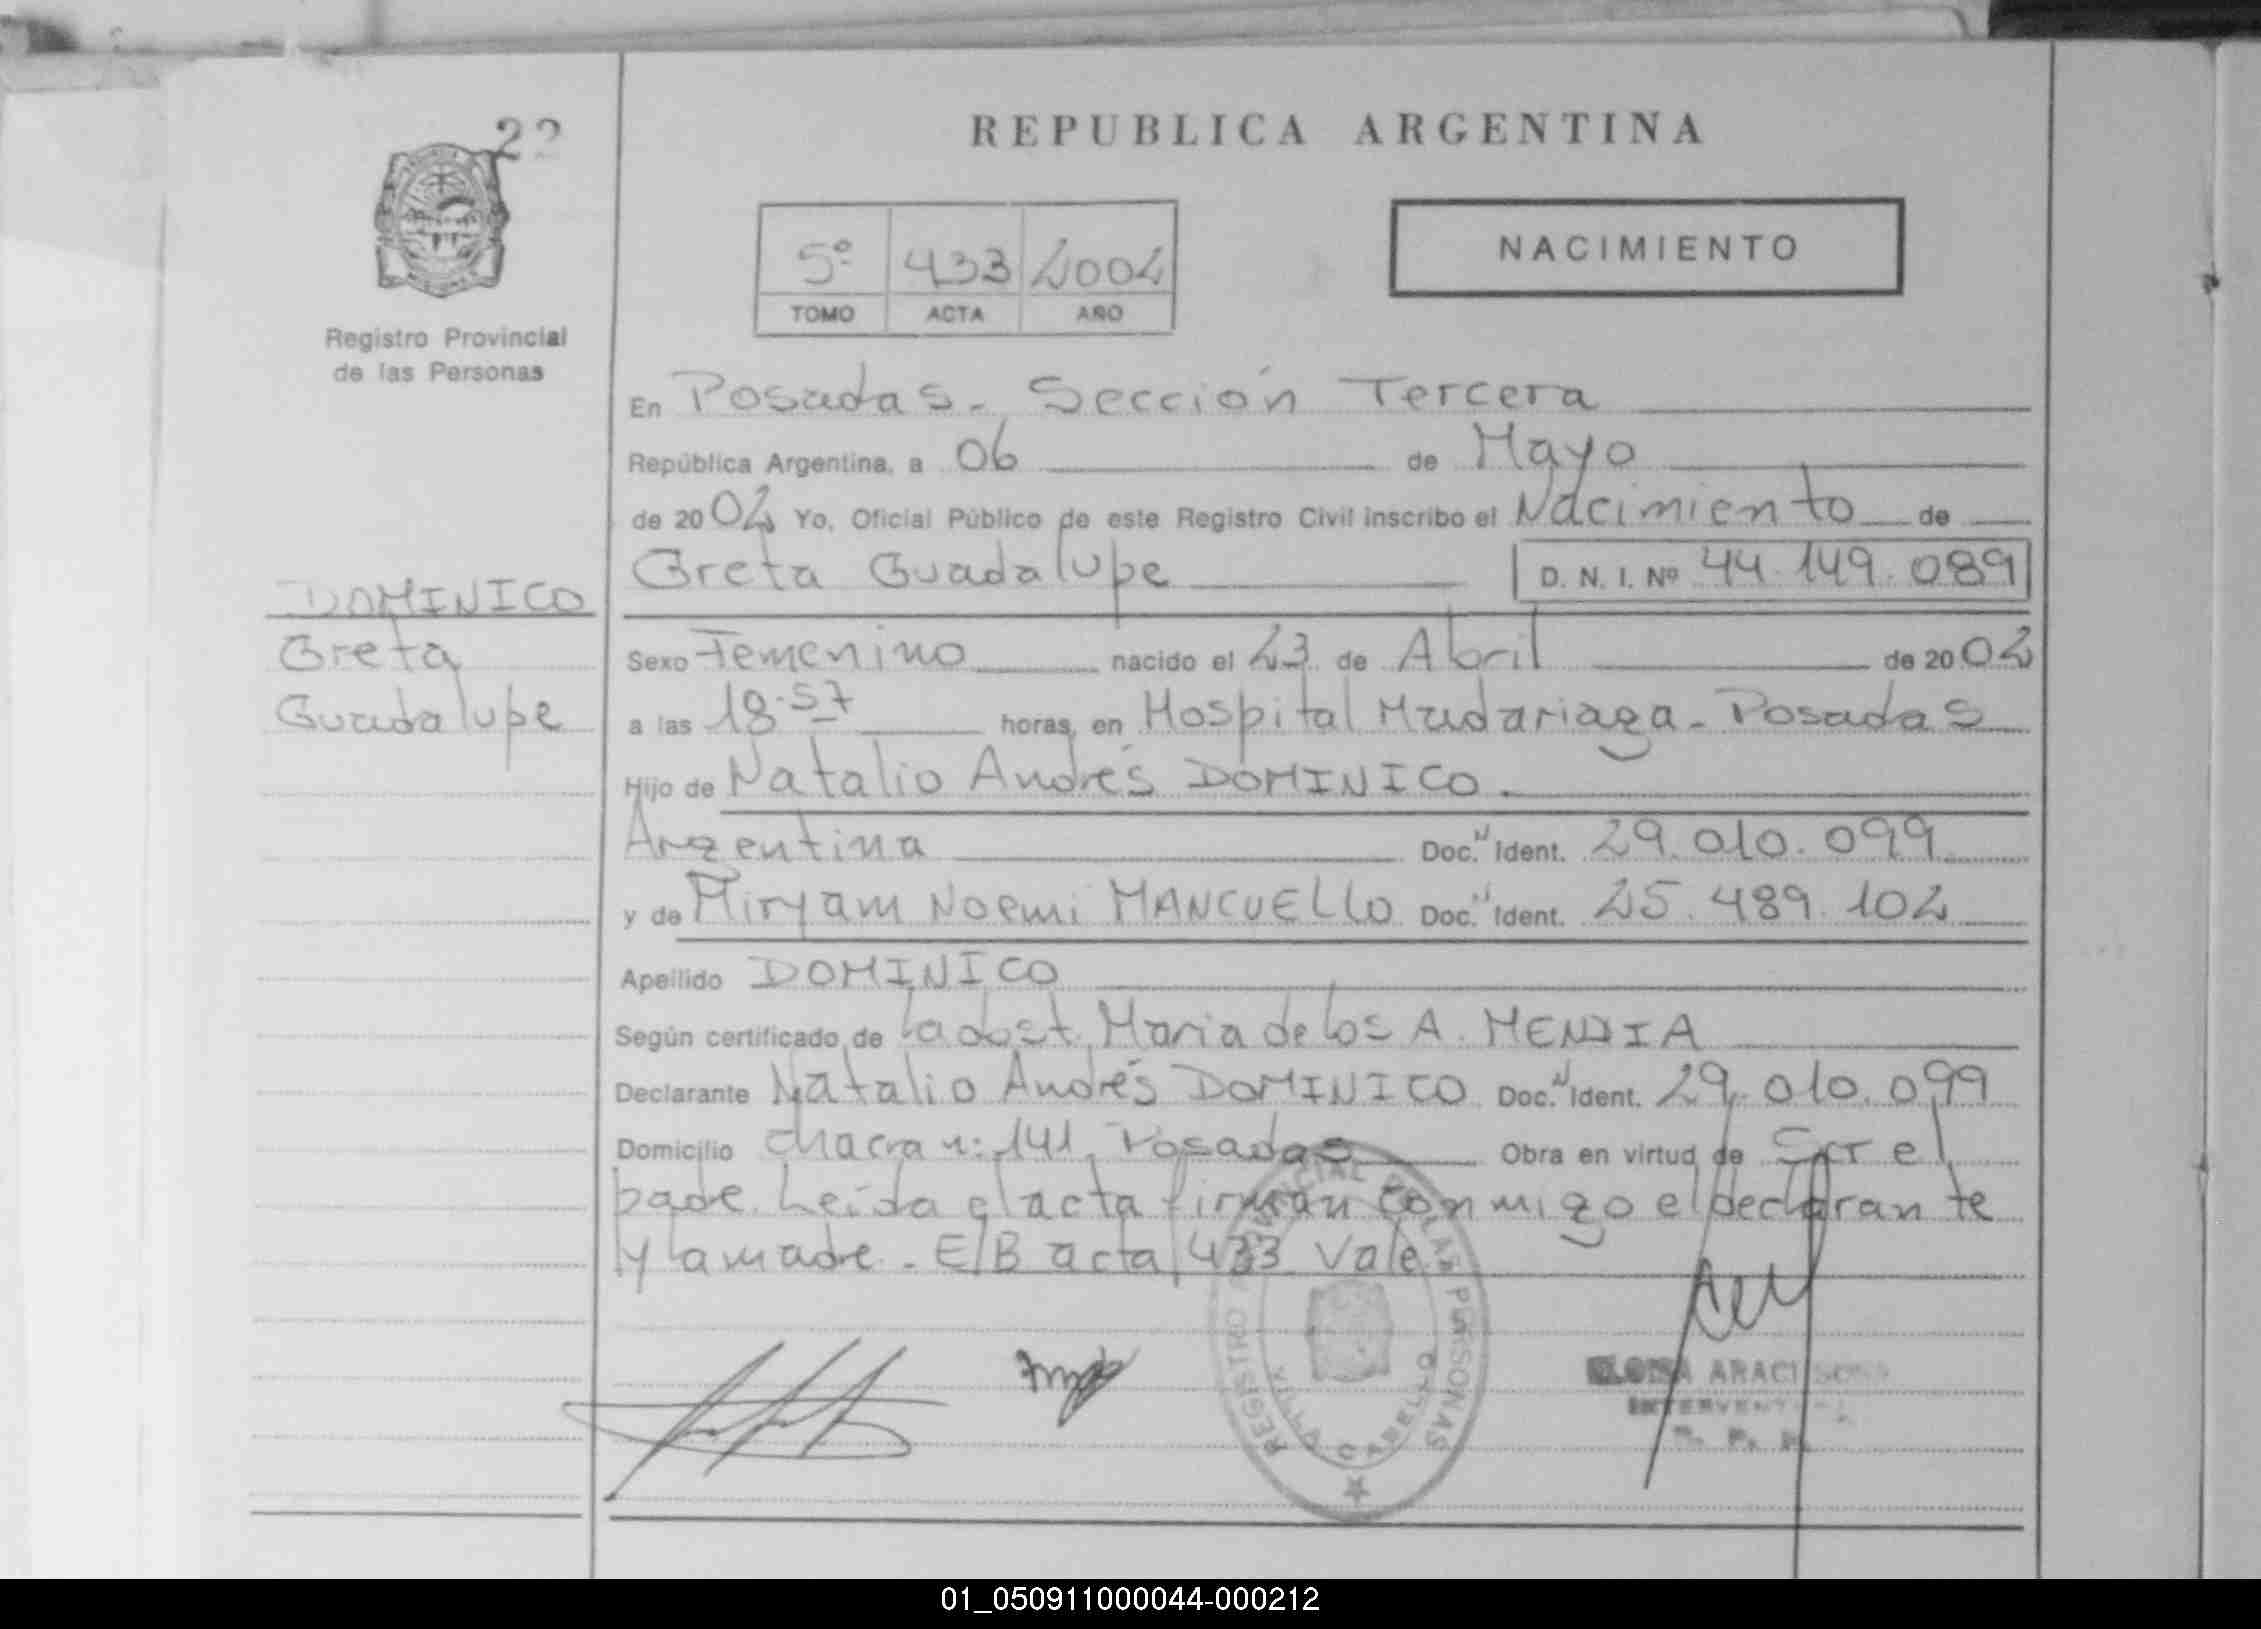 22
REPUBLICA ARGENTINA
5º 433 2002
TOMO ACTA AÑO
NACIMIENTO
Registro Provincial
de las Personas
En Posadas - Sección Tercera
República Argentina, a 06 de Mayo
de 2002 Yo, Oficial Público de este Registro Civil inscribo el Nacimiento de
Greta Guadalupe D. N. I. Nº 44.149.089
DOMINICO
Greta
Guadalupe
Sexo Femenino nacido el 23 de Abril de 2002
a las 18.57 horas, en Hospital Madariaga - Posadas
Hijo de Natalio Andrés DOMINICO
Argentina Doc. N Ident. 29.010.099
y de Miryam Noemi MANCUELLO Doc. N Ident. 25.489.102
Apellido DOMINICO
Según certificado de la obst. Maria de los A. MENDIA
Declarante Natalio Andrés DOMINICO Doc. N Ident. 29.010.099
Domicilio chacra n: 141 Posadas Obra en virtud de Ser el
padre. Leída el acta firman conmigo el declarante
y la madre - E/B acta 433 Vale
REGISTRO PROVINCIAL DE LAS PERSONAS
VILLA CABELLO
ARACI
01_050911000044-000212